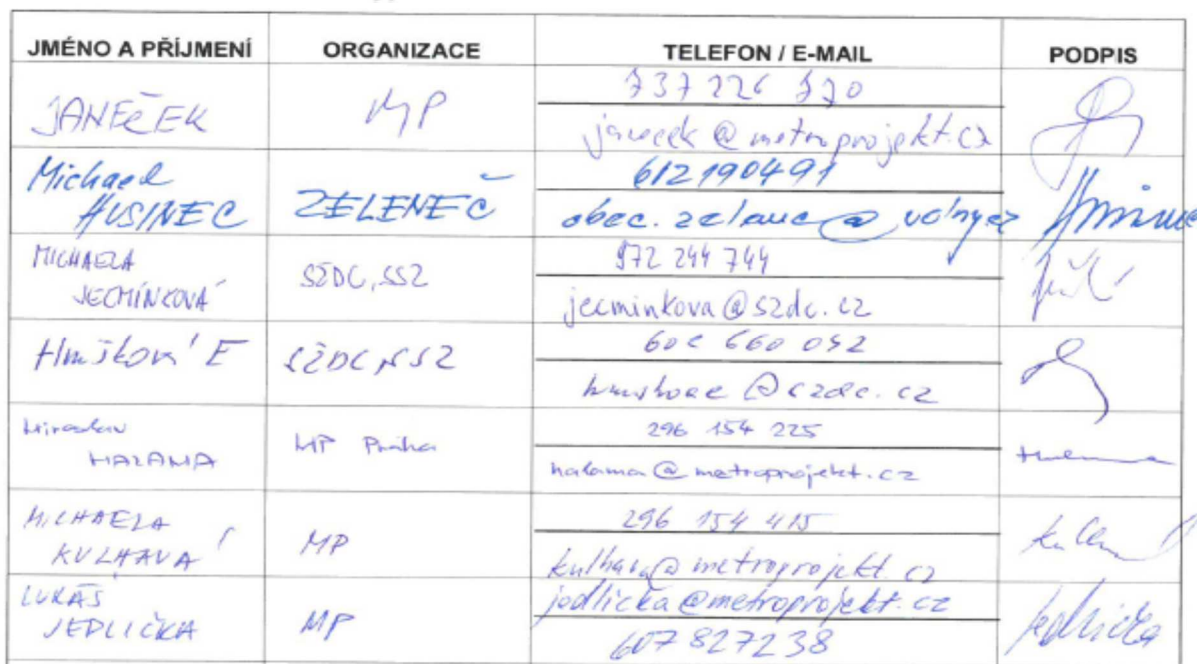 JMÉNO A PŘÍJMENÍ ORGANIZACE TELEFON / E-MAIL PODPIS
JANEČEK MP 737 226 770
janecek @ metroprojekt.cz
Michael HUSINEC ZELENEČ 612190491
obec.zelenec @ volny.cz
MICHAELA JECMÍNKOVÁ SŽDC, SSZ 972 244 744
jecminkova@szdc.cz
SŽDC, SSZ 602 660 052
@szdc.cz
Miroslav HALAMA MP Praha 296 154 225
halama@metroprojekt.cz
MICHAELA KULHAVÁ MP 296 154 415
kulhava@metroprojekt.cz
LUKÁŠ JEDLIČKA MP jedlicka@metroprojekt.cz
607 827238